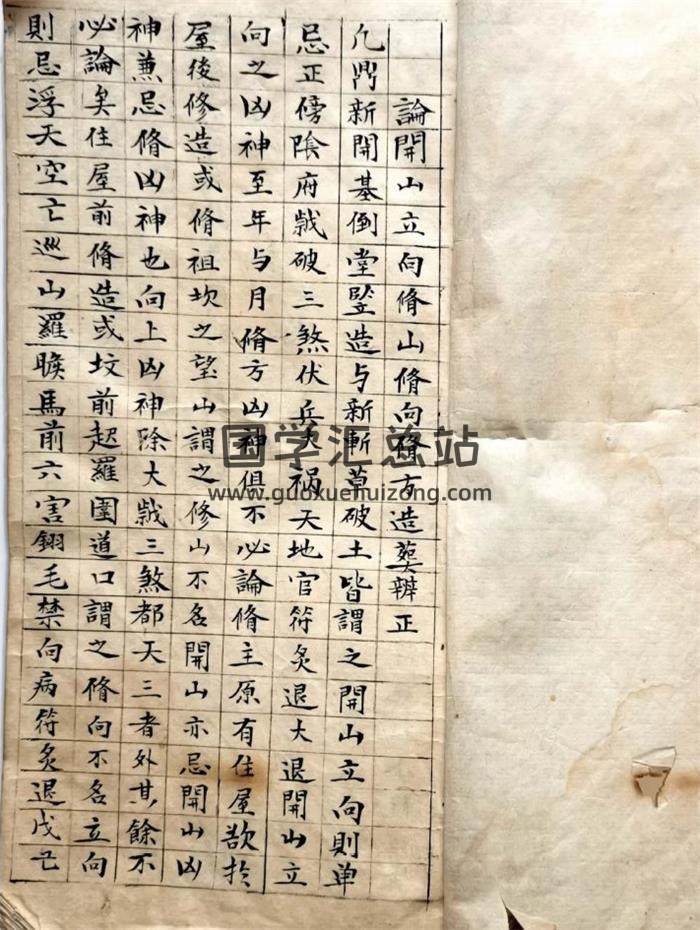 論開山立向脩山脩向脩方造葬辨正
凢鼎新開基倒堂竪造与新斬草破土皆謂之開山立向則单
忌正傍陰府㦸破三煞伏兵大祸天地官符炙退大退開山立
向之凶神至年与月脩方凶神俱不必論脩主原有住屋欲扵
屋後修造或脩祖坎之望山謂之修山不名開山亦忌開山凶
神兼忌脩凶神也向上凶神除大㦸三煞都天三者外其餘不
必論矣住屋前脩造或坟前起羅圍道口謂之脩向不名立向
則忌浮天空亡巡山羅睺馬前六害翎毛禁向病符炙退戊己
国学汇总站
www.guoxuehuizong.com